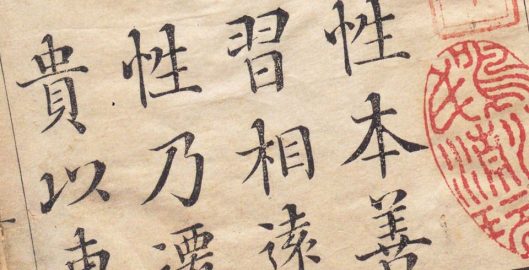 性本善
習相遠
性乃遷
貴以專